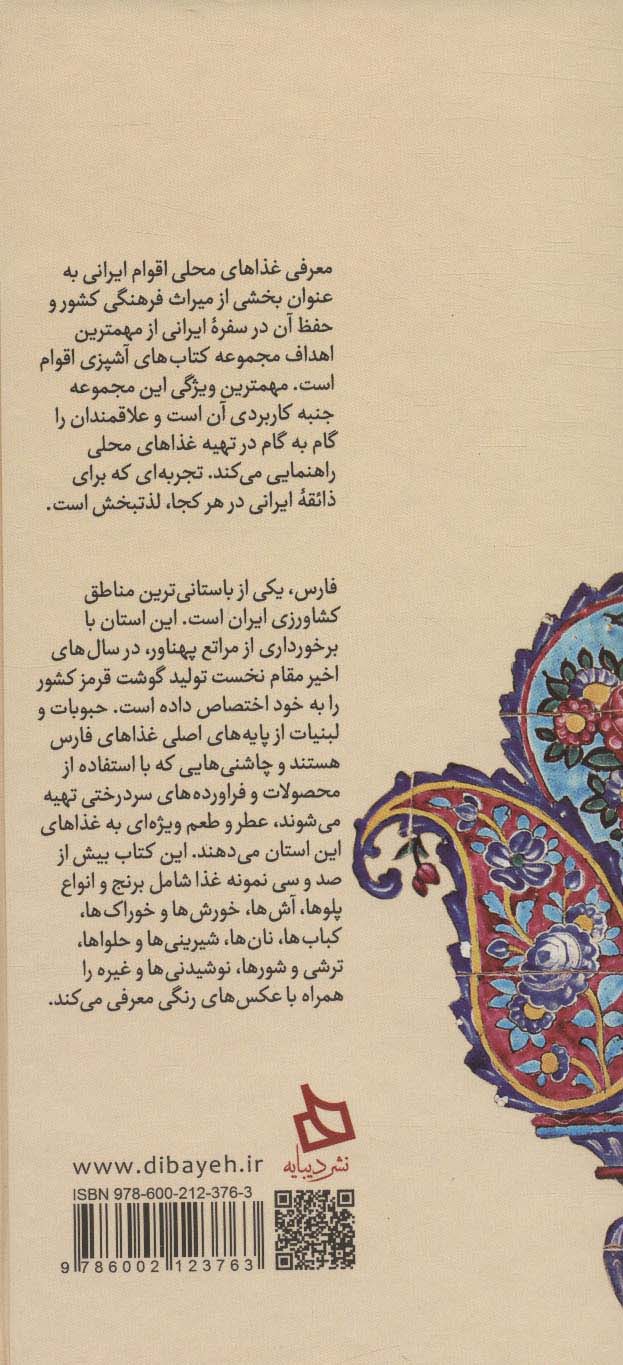 معرفی غذاهای محلی اقوام ایرانی به
عنوان بخشی از میراث فرهنگی کشور و
حفظ آن در سفرهٔ ایرانی از مهمترین
اهداف مجموعه کتاب‌های آشپزی اقوام
است. مهمترین ویژگی این مجموعه
جنبه کاربردی آن است و علاقمندان را
گام به گام در تهیه غذاهای محلی
راهنمایی می‌کند. تجربه‌ای که برای
ذائقهٔ ایرانی در هر کجا، لذتبخش است.
فارس، یکی از باستانی‌ترین مناطق
کشاورزی ایران است. این استان با
برخورداری از مراتع پهناور، در سال‌های
اخیر مقام نخست تولید گوشت قرمز کشور
را به خود اختصاص داده است. حبوبات و
لبنیات از پایه‌های اصلی غذاهای فارس
هستند و چاشنی‌هایی که با استفاده از
محصولات و فراورده‌های سردرختی تهیه
می‌شوند، عطر و طعم ویژه‌ای به غذاهای
این استان می‌دهند. این کتاب بیش از
صد و سی نمونه غذا شامل برنج و انواع
پلوها، آش‌ها، خورش‌ها و خوراک‌ها،
کباب‌ها، نان‌ها، شیرینی‌ها و حلواها،
ترشی و شورها، نوشیدنی‌ها و غیره را
همراه با عکس‌های رنگی معرفی می‌کند.
نشر دیبایه
www.dibayeh.ir
ISBN 978-600-212-376-3
9 786002 123763